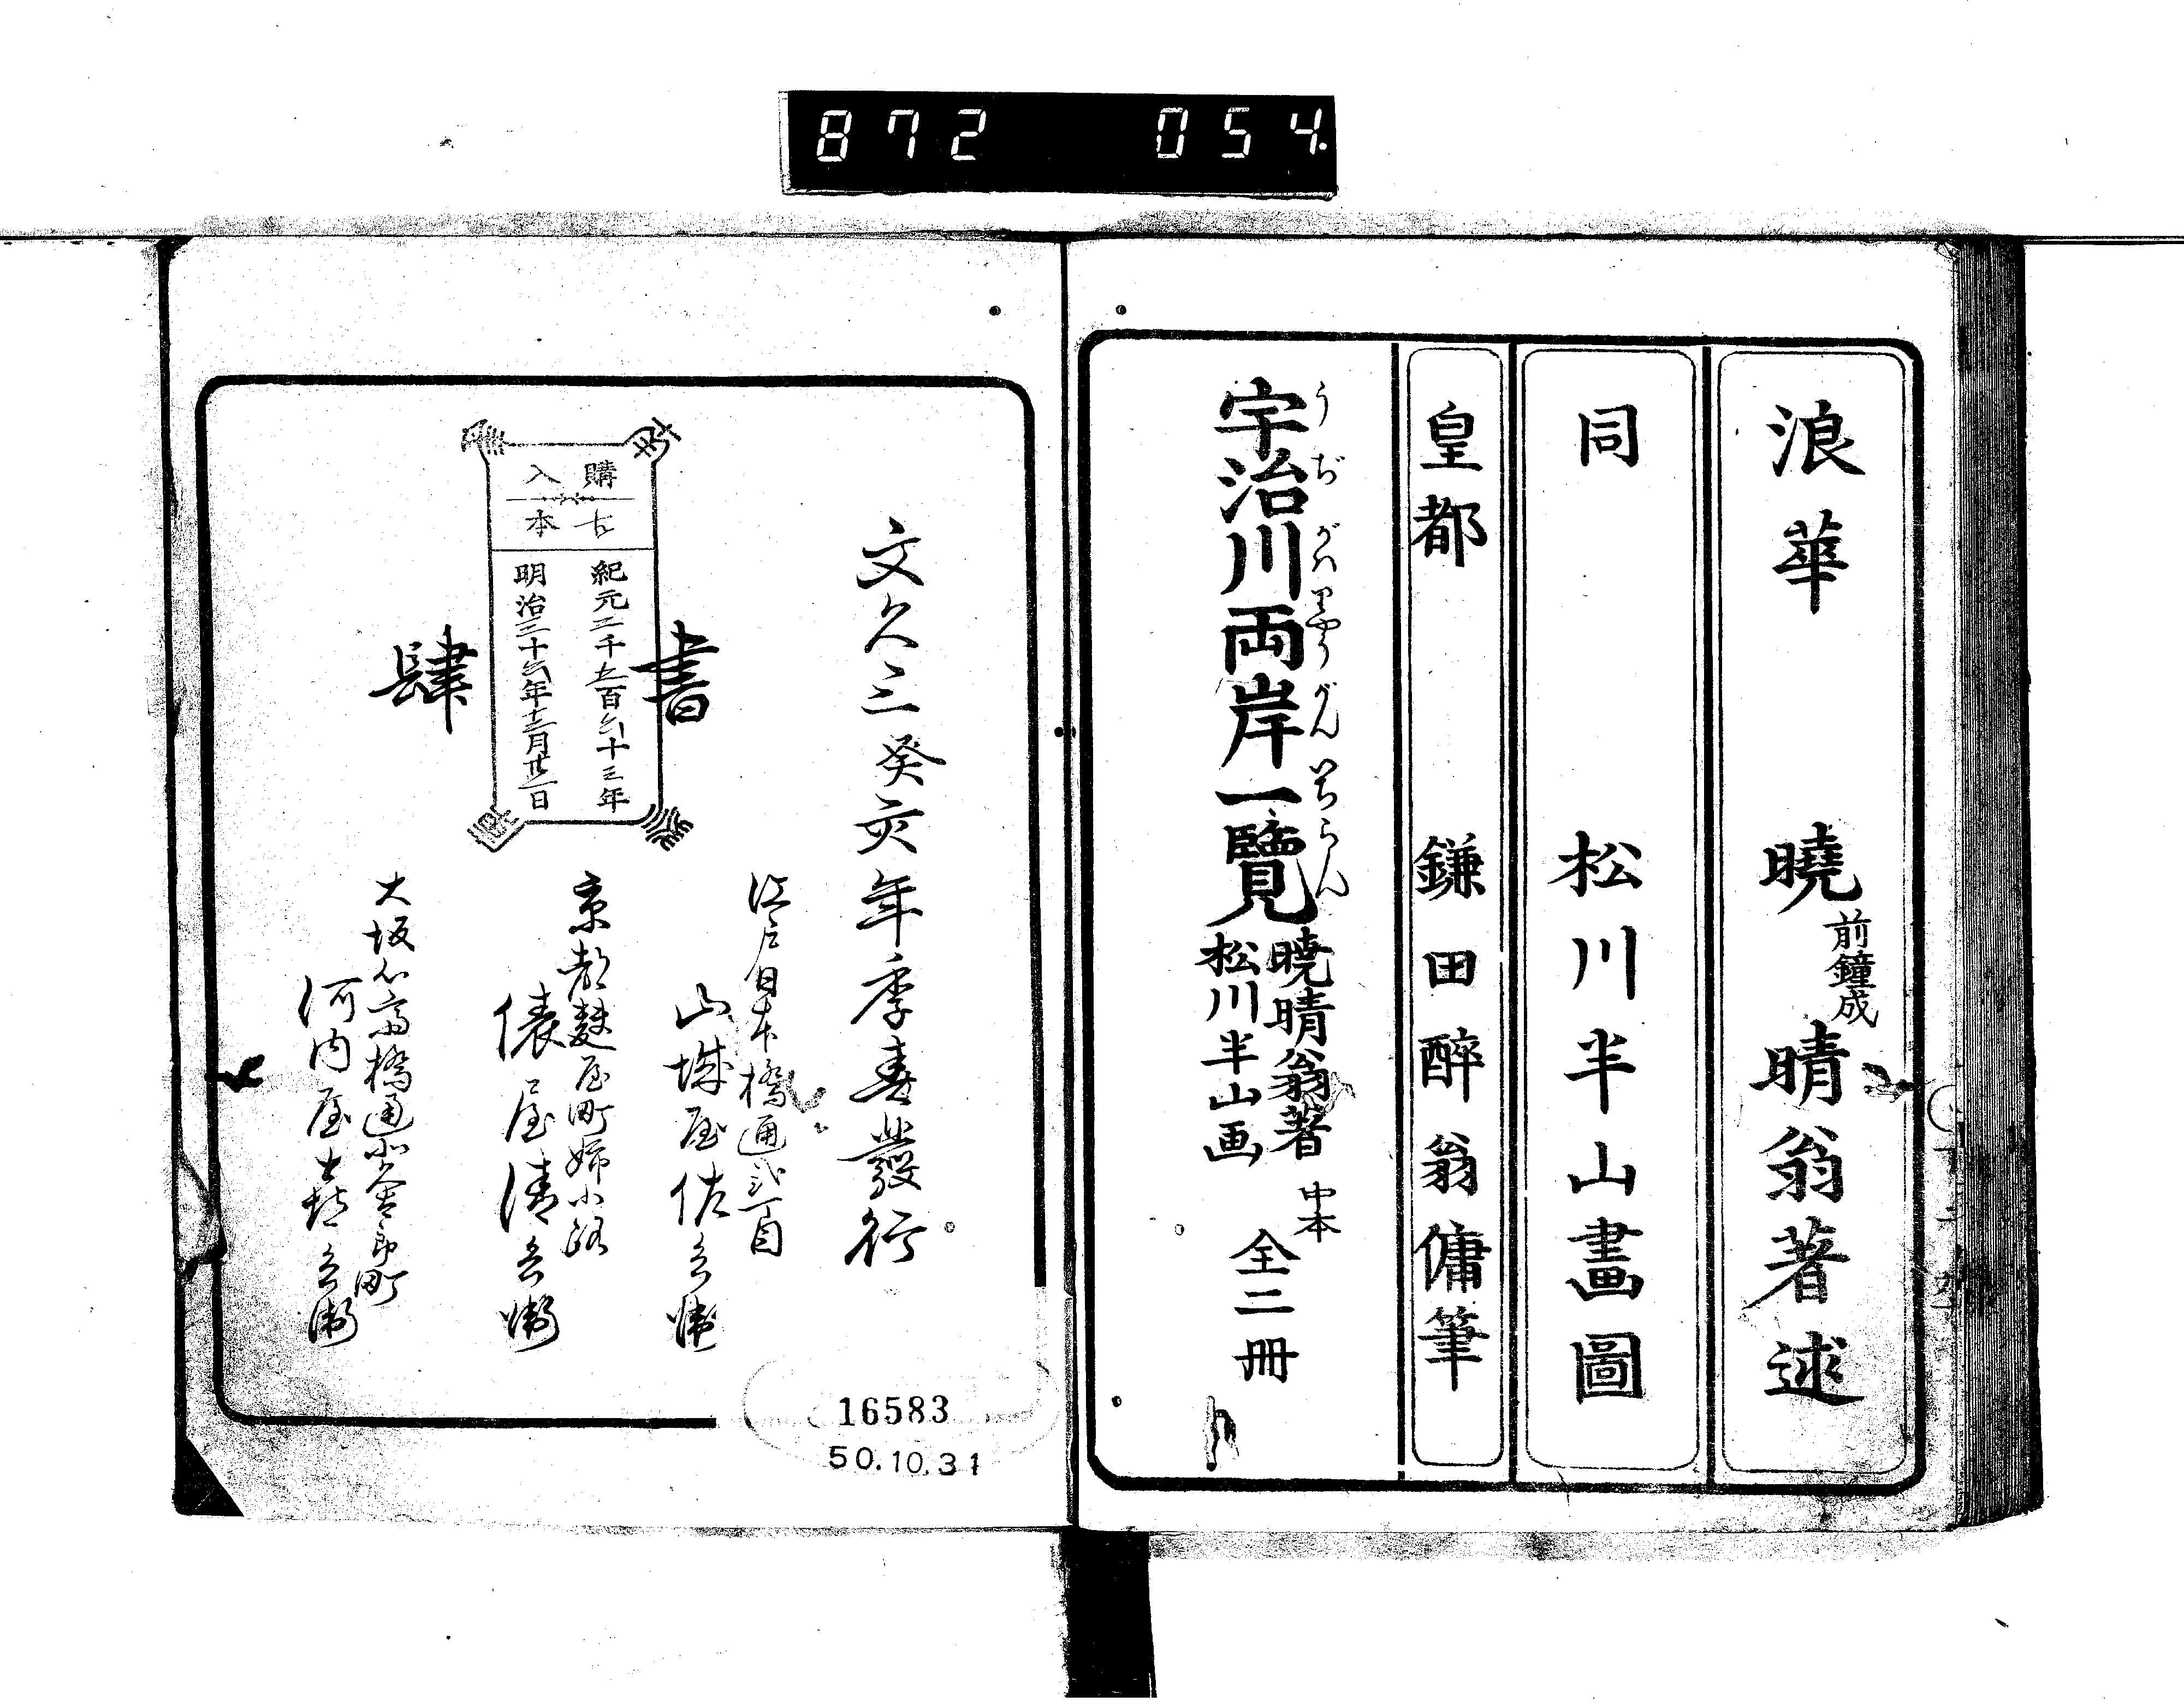 872 054
浪華 曉 前鐘成 晴翁著述
同 松川半山畫圖
皇都 鎌田醉翁傭筆
宇治川両岸一覽
うぢがハりやうがんいちらん
曉晴翁著
松川半山画
中本
全二冊
文久三癸亥年季春發行
書肆
江戸日本橋通弐丁目
山城屋佐兵衛
京都麸屋町姉小路
俵屋清兵衛
大坂心斎橋通北久太郎町
河内屋吉兵衛
購入
古本
紀元二千五百六十三年
明治三十六年十二月廿二日
16583
50.10.31